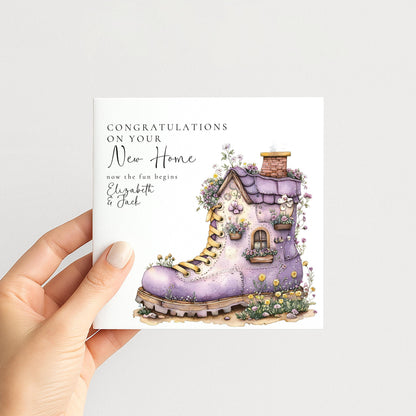 CONGRATULATIONS
ON YOUR
New Home
now the fun begins
Elizabeth
& Jack